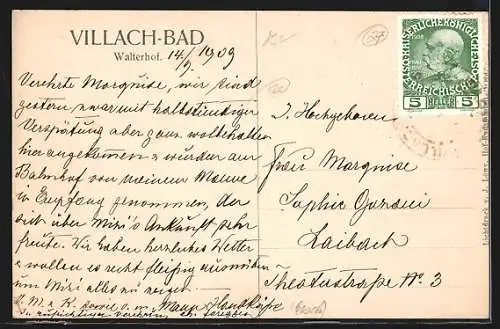 VILLACH-BAD
Walterhof. 14/9. 1909
Verehrte Marquise, wir sind
gestern zwar mit halbstündiger
Verspätung aber ganz wolbehalten
hier angekommen u wurden am
Bahnhof von meinem Manne
in Empfang genommen, der
sich über Mizi's Ankunft sehr
freute. Wir haben herrliches Wetter
u wollen es recht fleißig ausnützen
um Mizi alles zu zeigen.
M. m. Handküsse
I. Hochgeboren
Frau Marquise
Sophie Gozani
Laibach
Theatrastraße No. 3
KAISERLICHE KÖNIGLICHE
ÖSTERREICHISCHE
5 HELLER 5